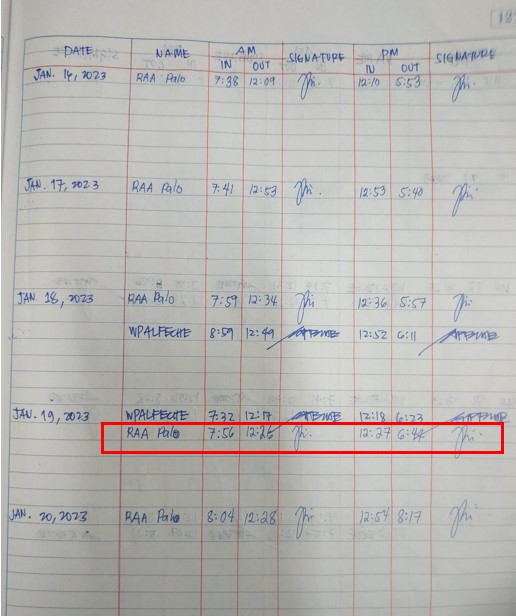 187
AM PM
DATE NAME IN OUT SIGNATURE IN OUT SIGNATURE
JAN. 16, 2023 RAA Palo 7:38 12:09 12:10 5:53
JAN. 17, 2023 RAA Palo 7:41 12:53 12:53 5:40
JAN. 18, 2023 RAA Palo 7:59 12:34 12:36 5:57
WPALFECHE 8:59 12:49 12:52 6:11
JAN. 19, 2023 WPALFECHE 7:32 12:17 12:18 6:23
RAA Palo 7:56 12:26 12:27 6:44
JAN. 20, 2023 RAA Palo 8:04 12:28 12:54 8:17